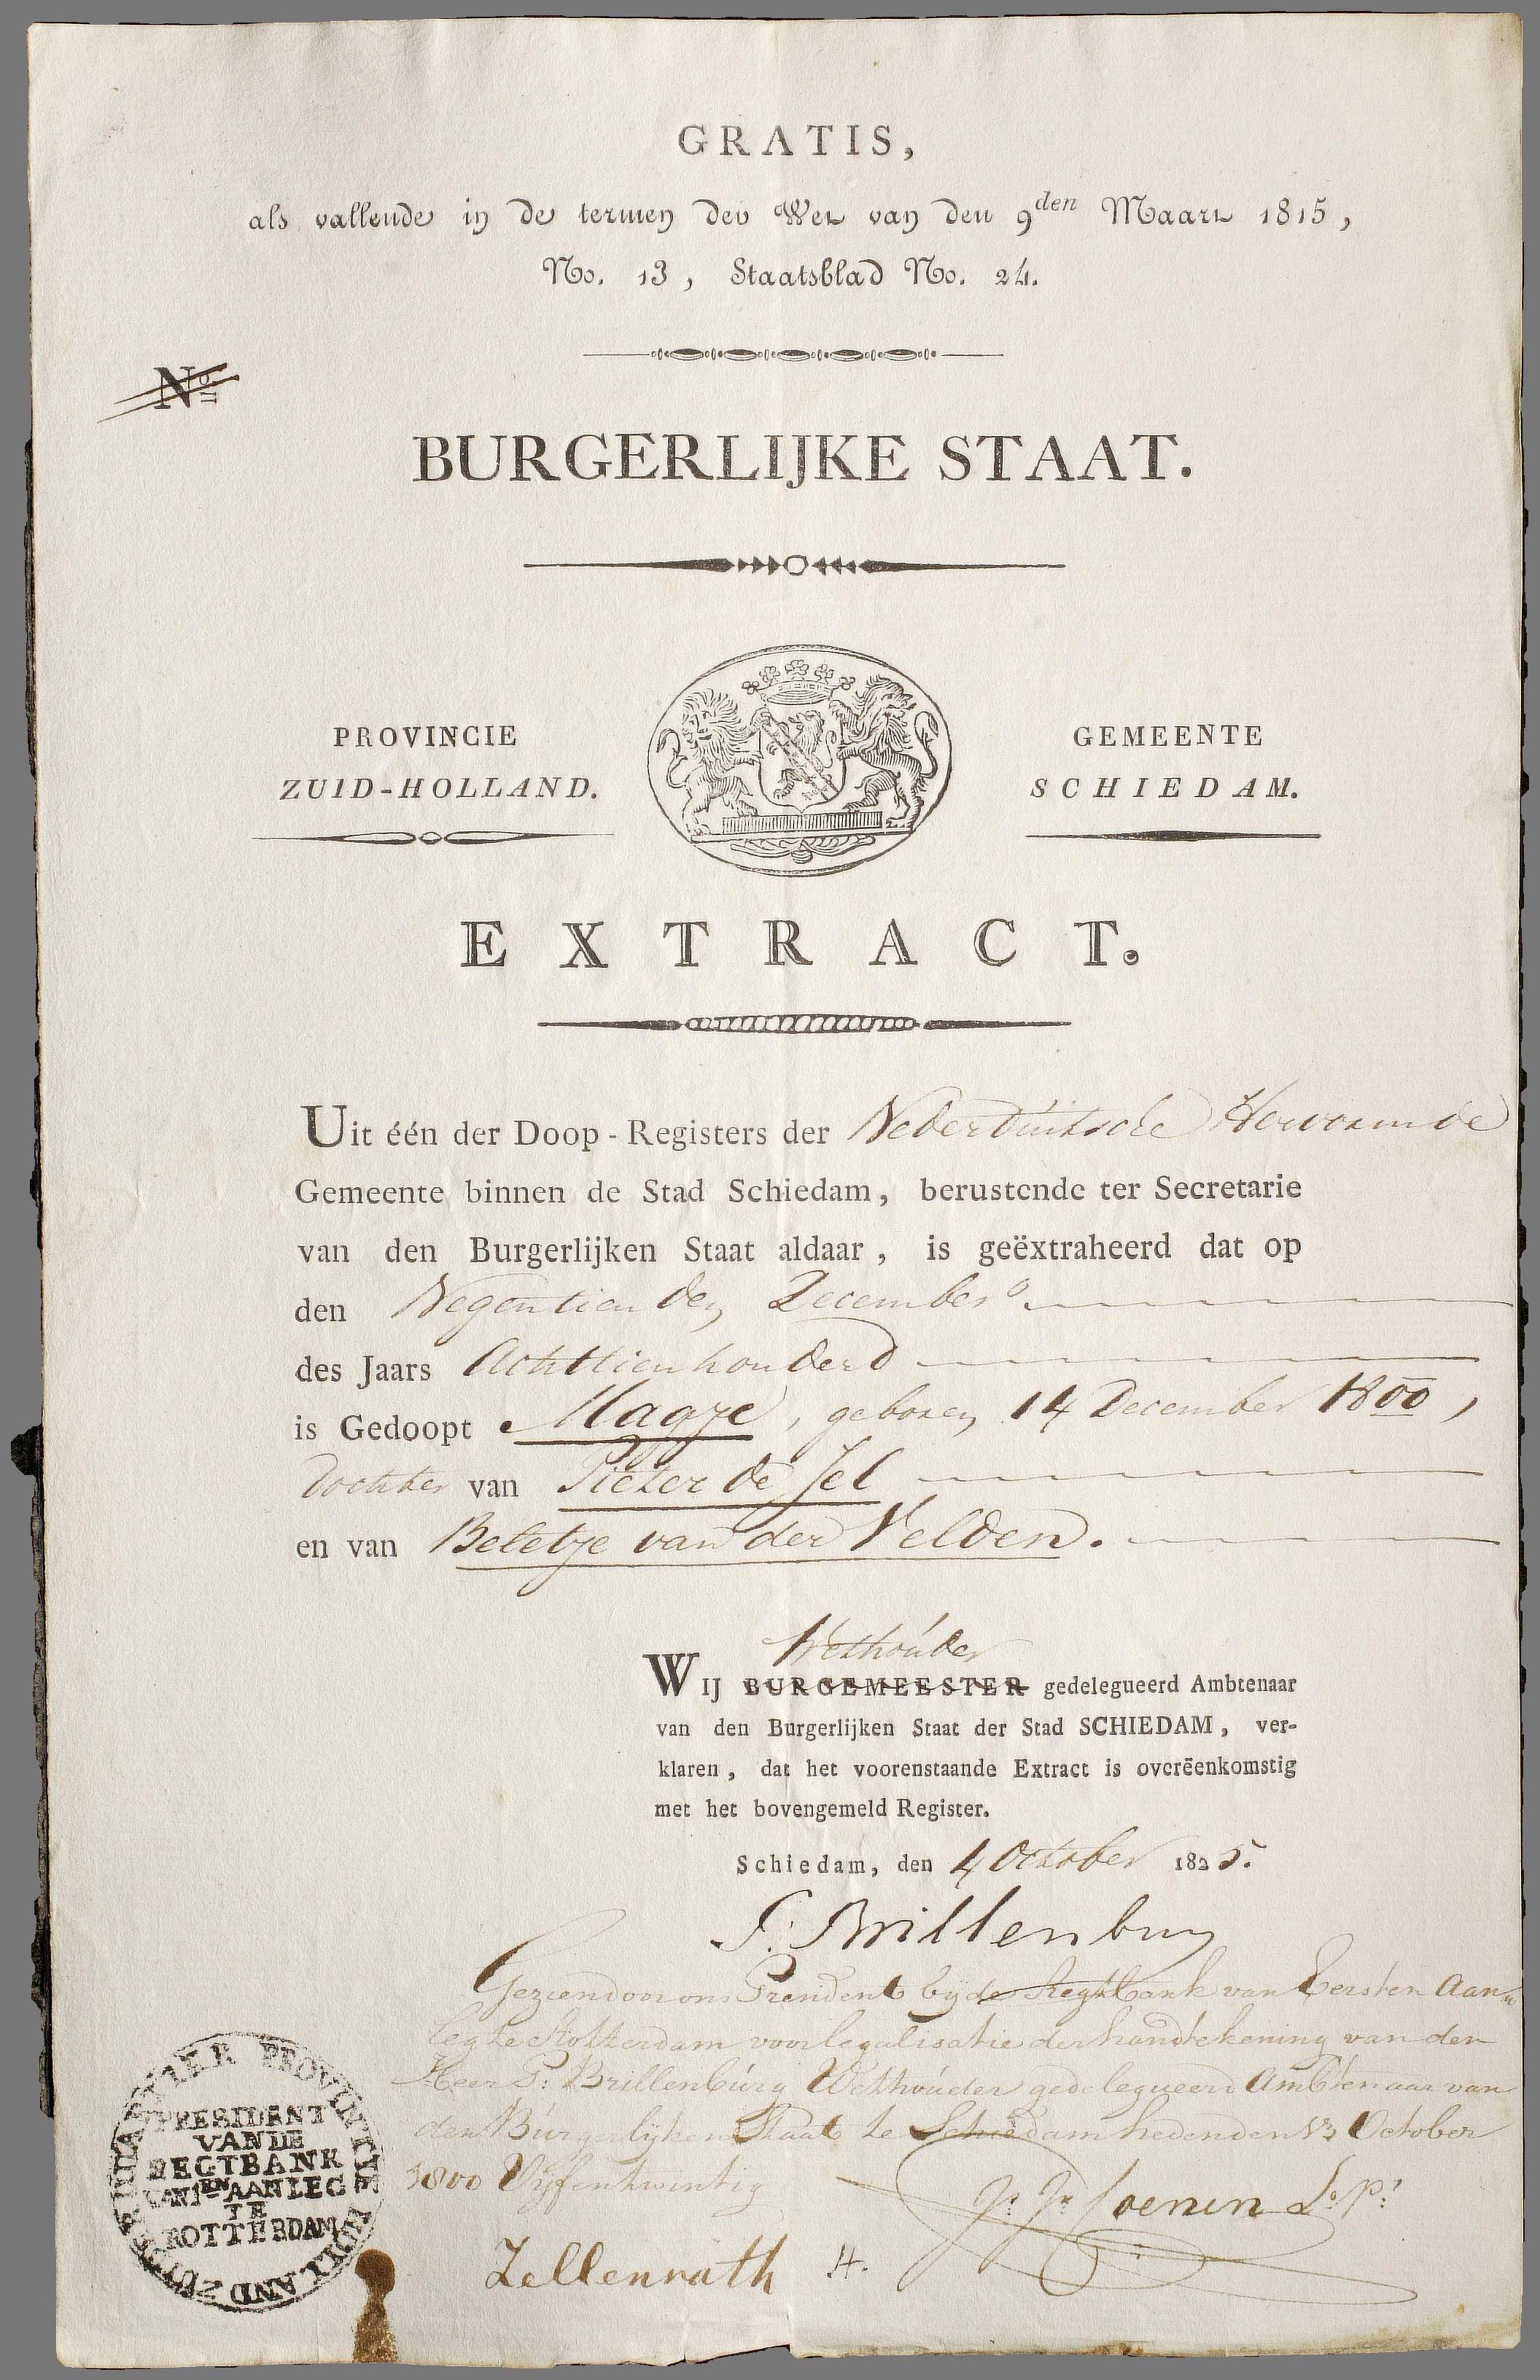 GRATIS,
als vallende in de termen der Wet van den 9den Maart 1815,
No. 13, Staatsblad No. 24.
No.
BURGERLIJKE STAAT.
PROVINCIE
ZUID-HOLLAND.
GEMEENTE
SCHIEDAM.
EXTRACT.
Uit één der Doop-Registers der Nederduitsche Hervormde
Gemeente binnen de Stad Schiedam, berustende ter Secretarie
van den Burgerlijken Staat aldaar, is geëxtraheerd dat op
den Negentienden December
des Jaars Achttienhonderd
is Gedoopt Magge, geboren 14 December 1800,
Dochter van Pieter de Jel
en van Beletje van der Velden.
Wethouder
WIJ BURGEMEESTER gedelegueerd Ambtenaar
van den Burgerlijken Staat der Stad SCHIEDAM, ver-
klaren, dat het voorenstaande Extract is overëenkomstig
met het bovengemeld Register.
Schiedam, den 4 October 1825.
Brillenburg
Gezien door ons President bij de Regtbank van Eersten Aan-
leg te Rotterdam voor legalisatie der handtekening van den
Heer P: Brillenburg Wethouder gedelegueerd Ambtenaar van
den Burgerlijken Staat te Schiedam heden den 13 October
1800 Vijfentwintig
Loenen
Zellenrath
PROVINTIE ZUID HOLLAND
PRESIDENT
VAN DE
REGTBANK
VAN 1EN AANLEG
TE
ROTTERDAM